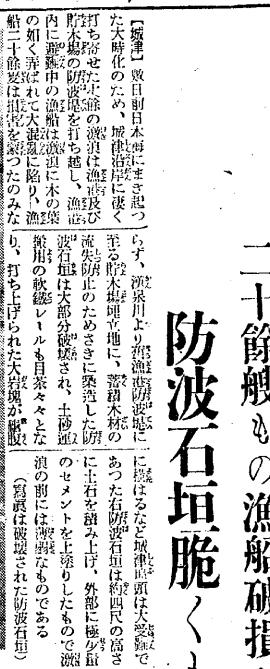 二十餘艘もの漁船破損
防波石垣脆くも
【城津】數日前日本海にまき起つ
た大時化のため、城津沿岸に凄く
打ち寄せた丈餘の激浪は漁港及び
貯木場の防波堤を打ち越し、漁港
内に避難中の漁船は激浪に木の葉
の如く弄ばれて大混亂に陷り、漁
船二十餘隻は損害を蒙つたのみな
らず、泉川より舊漁港防波堤に
至る貯木場埋立地に、蓄積木材の
流失防止のためさきに築造した防
波石垣は大部分破壞され、土砂運
搬用の軌鐵レールも目茶々々とな
り、打ち上げられた大岩塊が縱横
に横はるなど城津埠頭は大受難で
あつた右防波石垣は約四尺の高さ
に土石を積み上げ、外部に極少量
のセメントを上塗りしたもので激
浪の前には薄弱なものである
（寫眞は破壞された防波石垣）